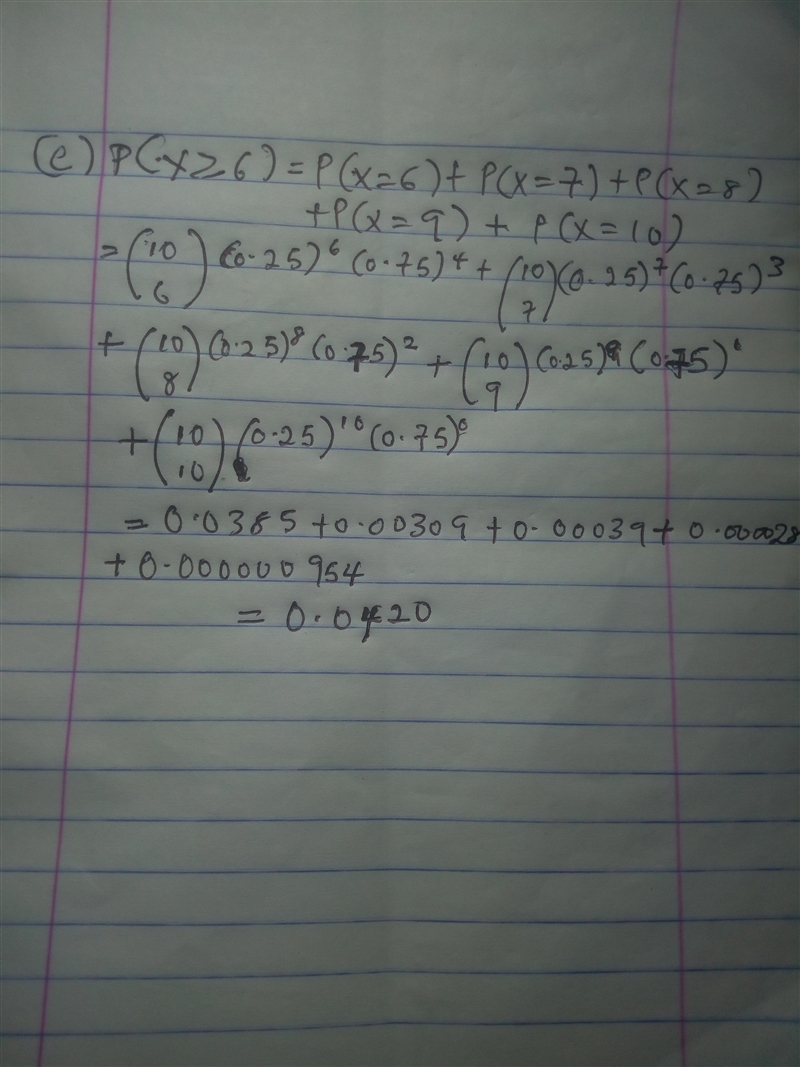 (e) P(X≥6) = P(X=6) + P(X=7) + P(X=8)
+ P(X=9) + P(X=10)
= (10 6) (0.25)⁶ (0.75)⁴ + (10 7) (0.25)⁷ (0.75)³
+ (10 8) (0.25)⁸ (0.75)² + (10 9) (0.25)⁹ (0.75)¹
+ (10 10) (0.25)¹⁰ (0.75)⁰
= 0.0385 + 0.00309 + 0.00039 + 0.000028
+ 0.000000954
= 0.0420